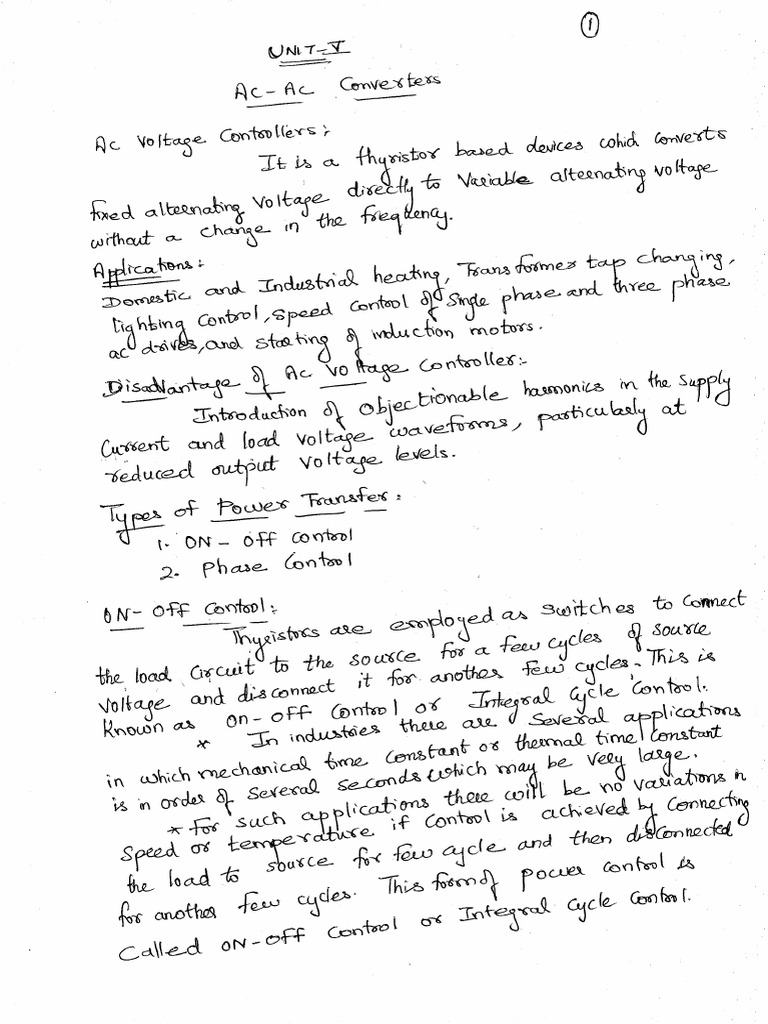 1
UNIT-V
AC-AC Converters
AC Voltage Controllers:
It is a thyristor based devices cohid converts
fixed alternating voltage directly to variable alternating voltage
without a change in the frequency.
Applications:
Domestic and Industrial heating, Transformer tap changing,
lighting control, speed control of single phase and three phase
ac drives, and starting of induction motors.
Disadvantage of AC Voltage Controller:-
Introduction of objectionable harmonics in the supply
Current and load voltage waveforms, particularly at
reduced output voltage levels.
Types of Power Transfer:
1. ON - OFF control
2. Phase Control
ON- OFF Control:
Thyristors are employed as switches to connect
the load circuit to the source for a few cycles of source
voltage and disconnect it for another few cycles. This is
known as on-off control or Integral Cycle Control.
* In industries there are several applications
in which mechanical time constant or thermal time constant
is in order of several seconds which may be very large.
* For such applications there will be no variations in
speed or temperature if control is achieved by connecting
the load to source for few cycle and then disconnected
for another few cycles. This form of power control is
Called ON-OFF control or Integral Cycle Control.